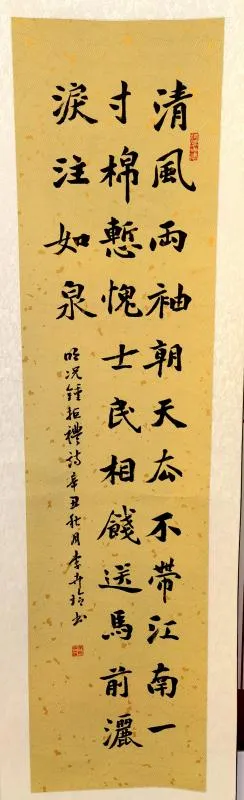 清風兩袖朝天去不帶江南一
寸棉慙愧士民相餞送馬前灑
淚注如泉
明况鍾拒禮詩辛丑秋月李書